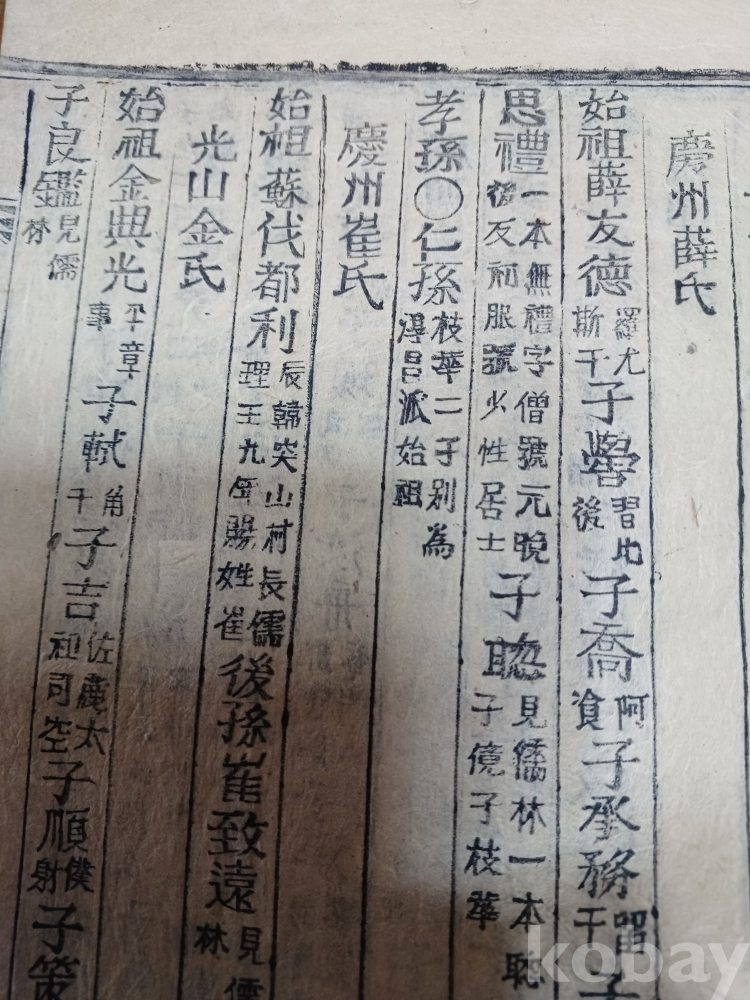 慶州薛氏
始祖薛友德 羅尤斯干 子 習比後 子喬 阿湌 子承務 留干 子
思禮 一本無禮字僧號元曉後反初服號少性居士 子聰 見儒林一本聡子億子枝華
孝孫○仁孫 枝華二子別為淳昌派始祖
慶州崔氏
始祖蘇伐都利 辰韓突山村長儒理王九年賜姓崔 後孫崔致遠 見儒林
光山金氏
始祖金典光 平章事 子軾 角干 子吉 佐麗太祖司空 子順 僕射 子策
子良鑑 見儒林
kobay